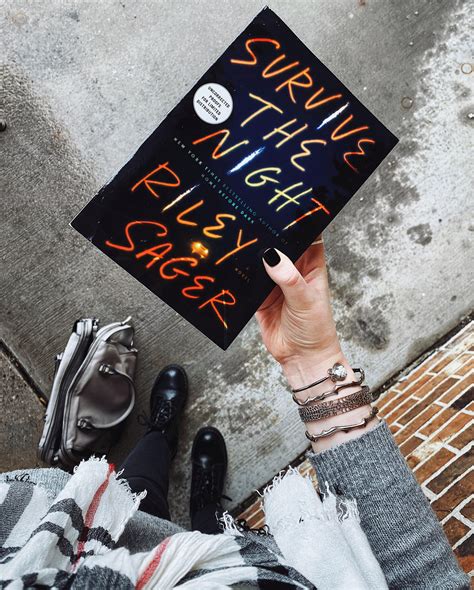 SURVIVE
THE
NIGHT
UNCORRECTED
PROOFS
FOR LIMITED
DISTRIBUTION
NEW YORK TIMES BESTSELLING AUTHOR OF
HOME BEFORE DARK
RILEY
SAGER
A
NOVEL